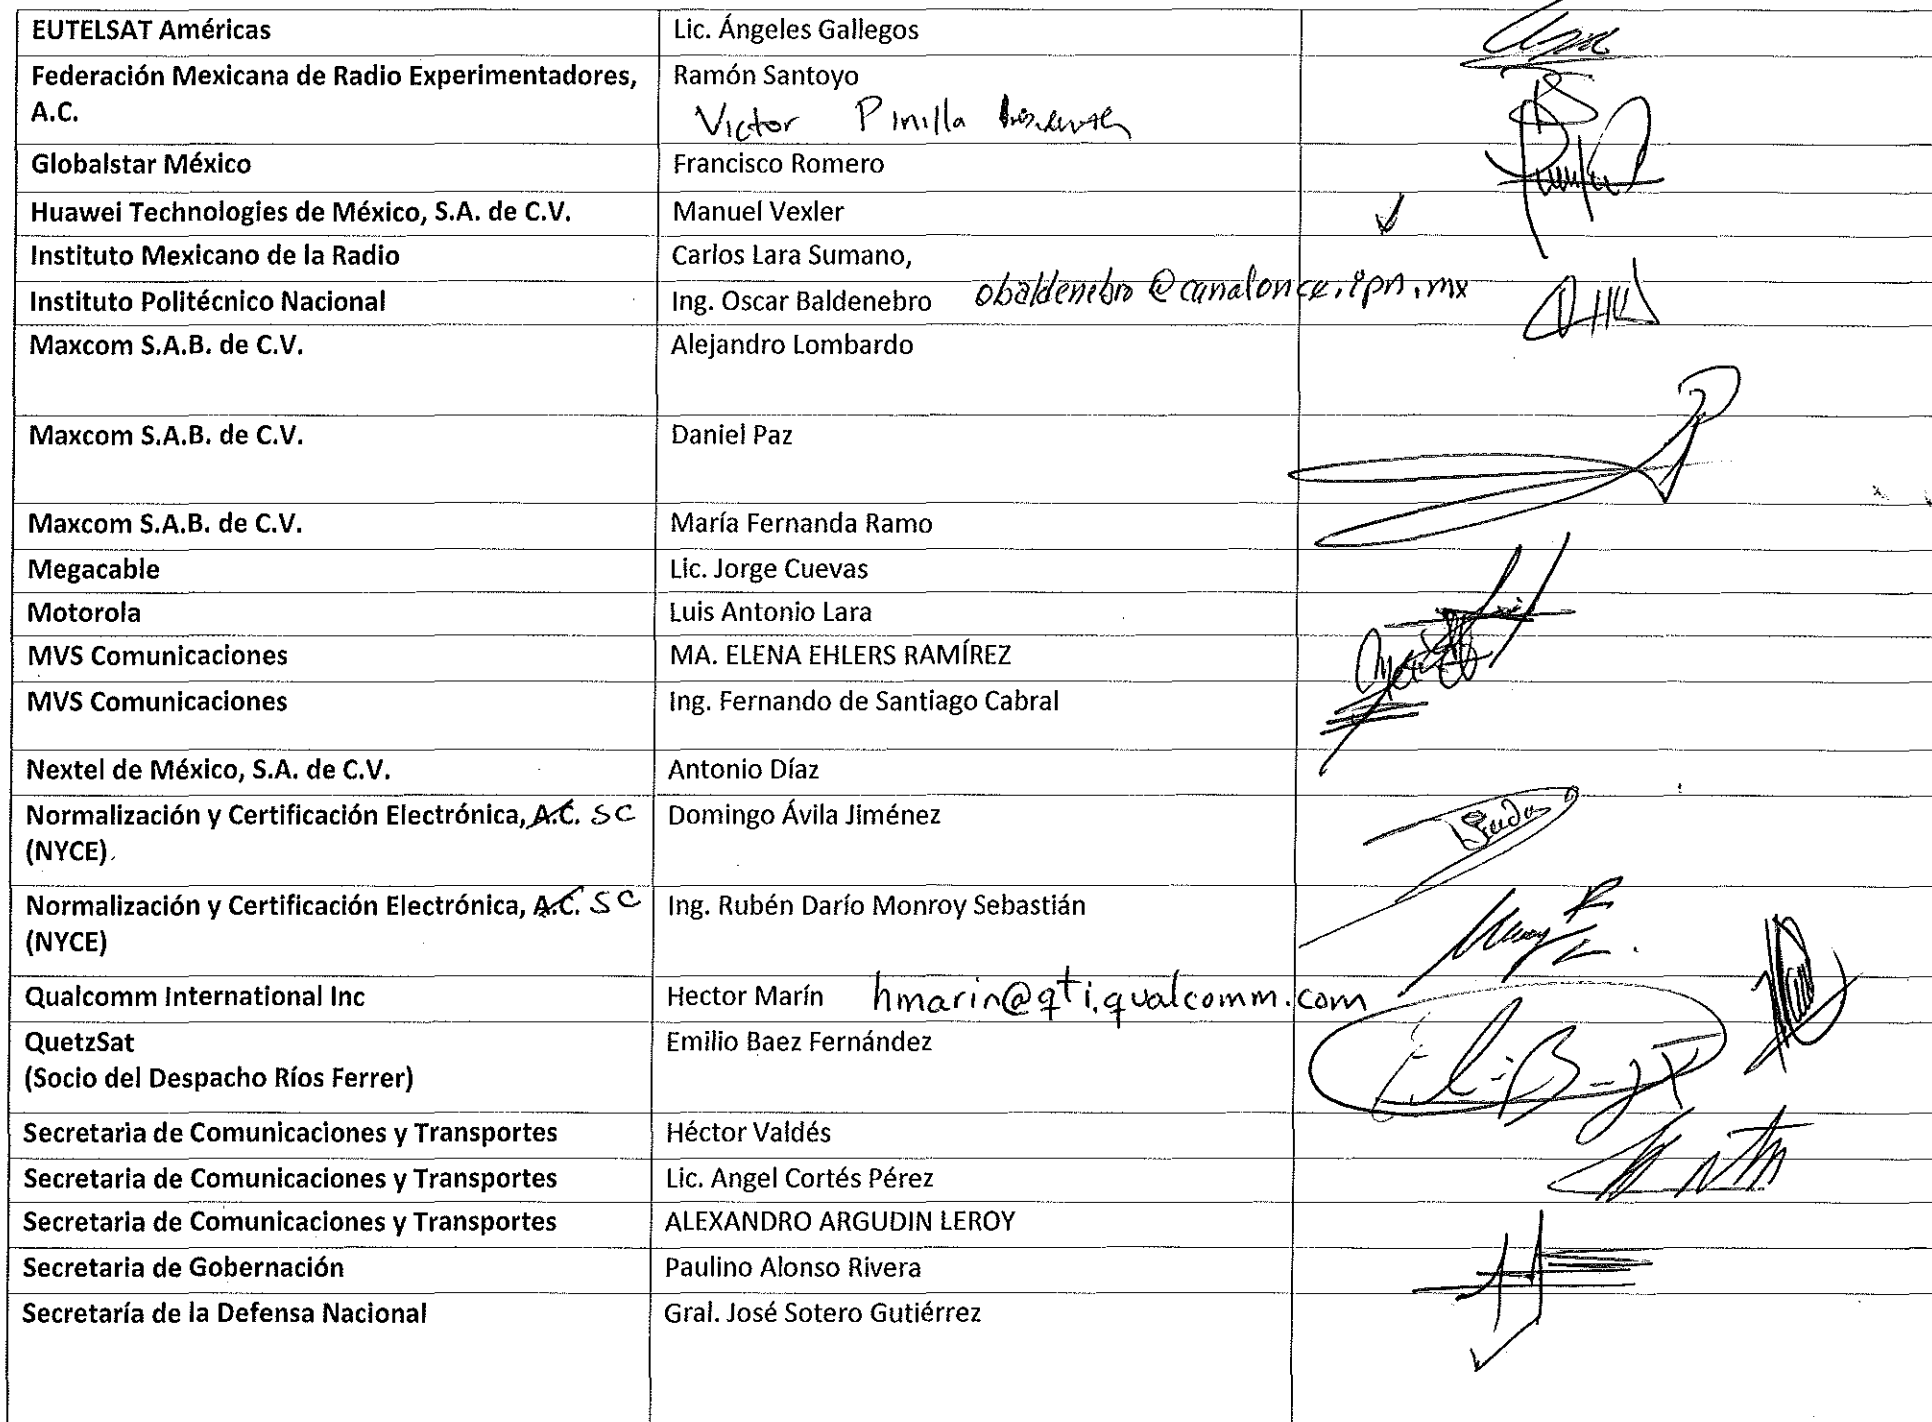 EUTELSAT Américas Lic. Ángeles Gallegos
Federación Mexicana de Radio Experimentadores, Ramón Santoyo
A.C. Victor Pinilla
Globalstar México Francisco Romero
Huawei Technologies de México, S.A. de C.V. Manuel Vexler
Instituto Mexicano de la Radio Carlos Lara Sumano,
Instituto Politécnico Nacional Ing. Oscar Baldenebro obaldenebro@canalonce.ipn.mx
Maxcom S.A.B. de C.V. Alejandro Lombardo
Maxcom S.A.B. de C.V. Daniel Paz
Maxcom S.A.B. de C.V. María Fernanda Ramo
Megacable Lic. Jorge Cuevas
Motorola Luis Antonio Lara
MVS Comunicaciones MA. ELENA EHLERS RAMÍREZ
MVS Comunicaciones Ing. Fernando de Santiago Cabral
Nextel de México, S.A. de C.V. Antonio Díaz
Normalización y Certificación Electrónica, A.C. SC Domingo Ávila Jiménez
(NYCE)
Normalización y Certificación Electrónica, A.C. SC Ing. Rubén Darío Monroy Sebastián
(NYCE)
Qualcomm International Inc Hector Marín hmarin@qti.qualcomm.com
QuetzSat Emilio Baez Fernández
(Socio del Despacho Ríos Ferrer)
Secretaria de Comunicaciones y Transportes Héctor Valdés
Secretaria de Comunicaciones y Transportes Lic. Angel Cortés Pérez
Secretaria de Comunicaciones y Transportes ALEXANDRO ARGUDIN LEROY
Secretaria de Gobernación Paulino Alonso Rivera
Secretaría de la Defensa Nacional Gral. José Sotero Gutiérrez